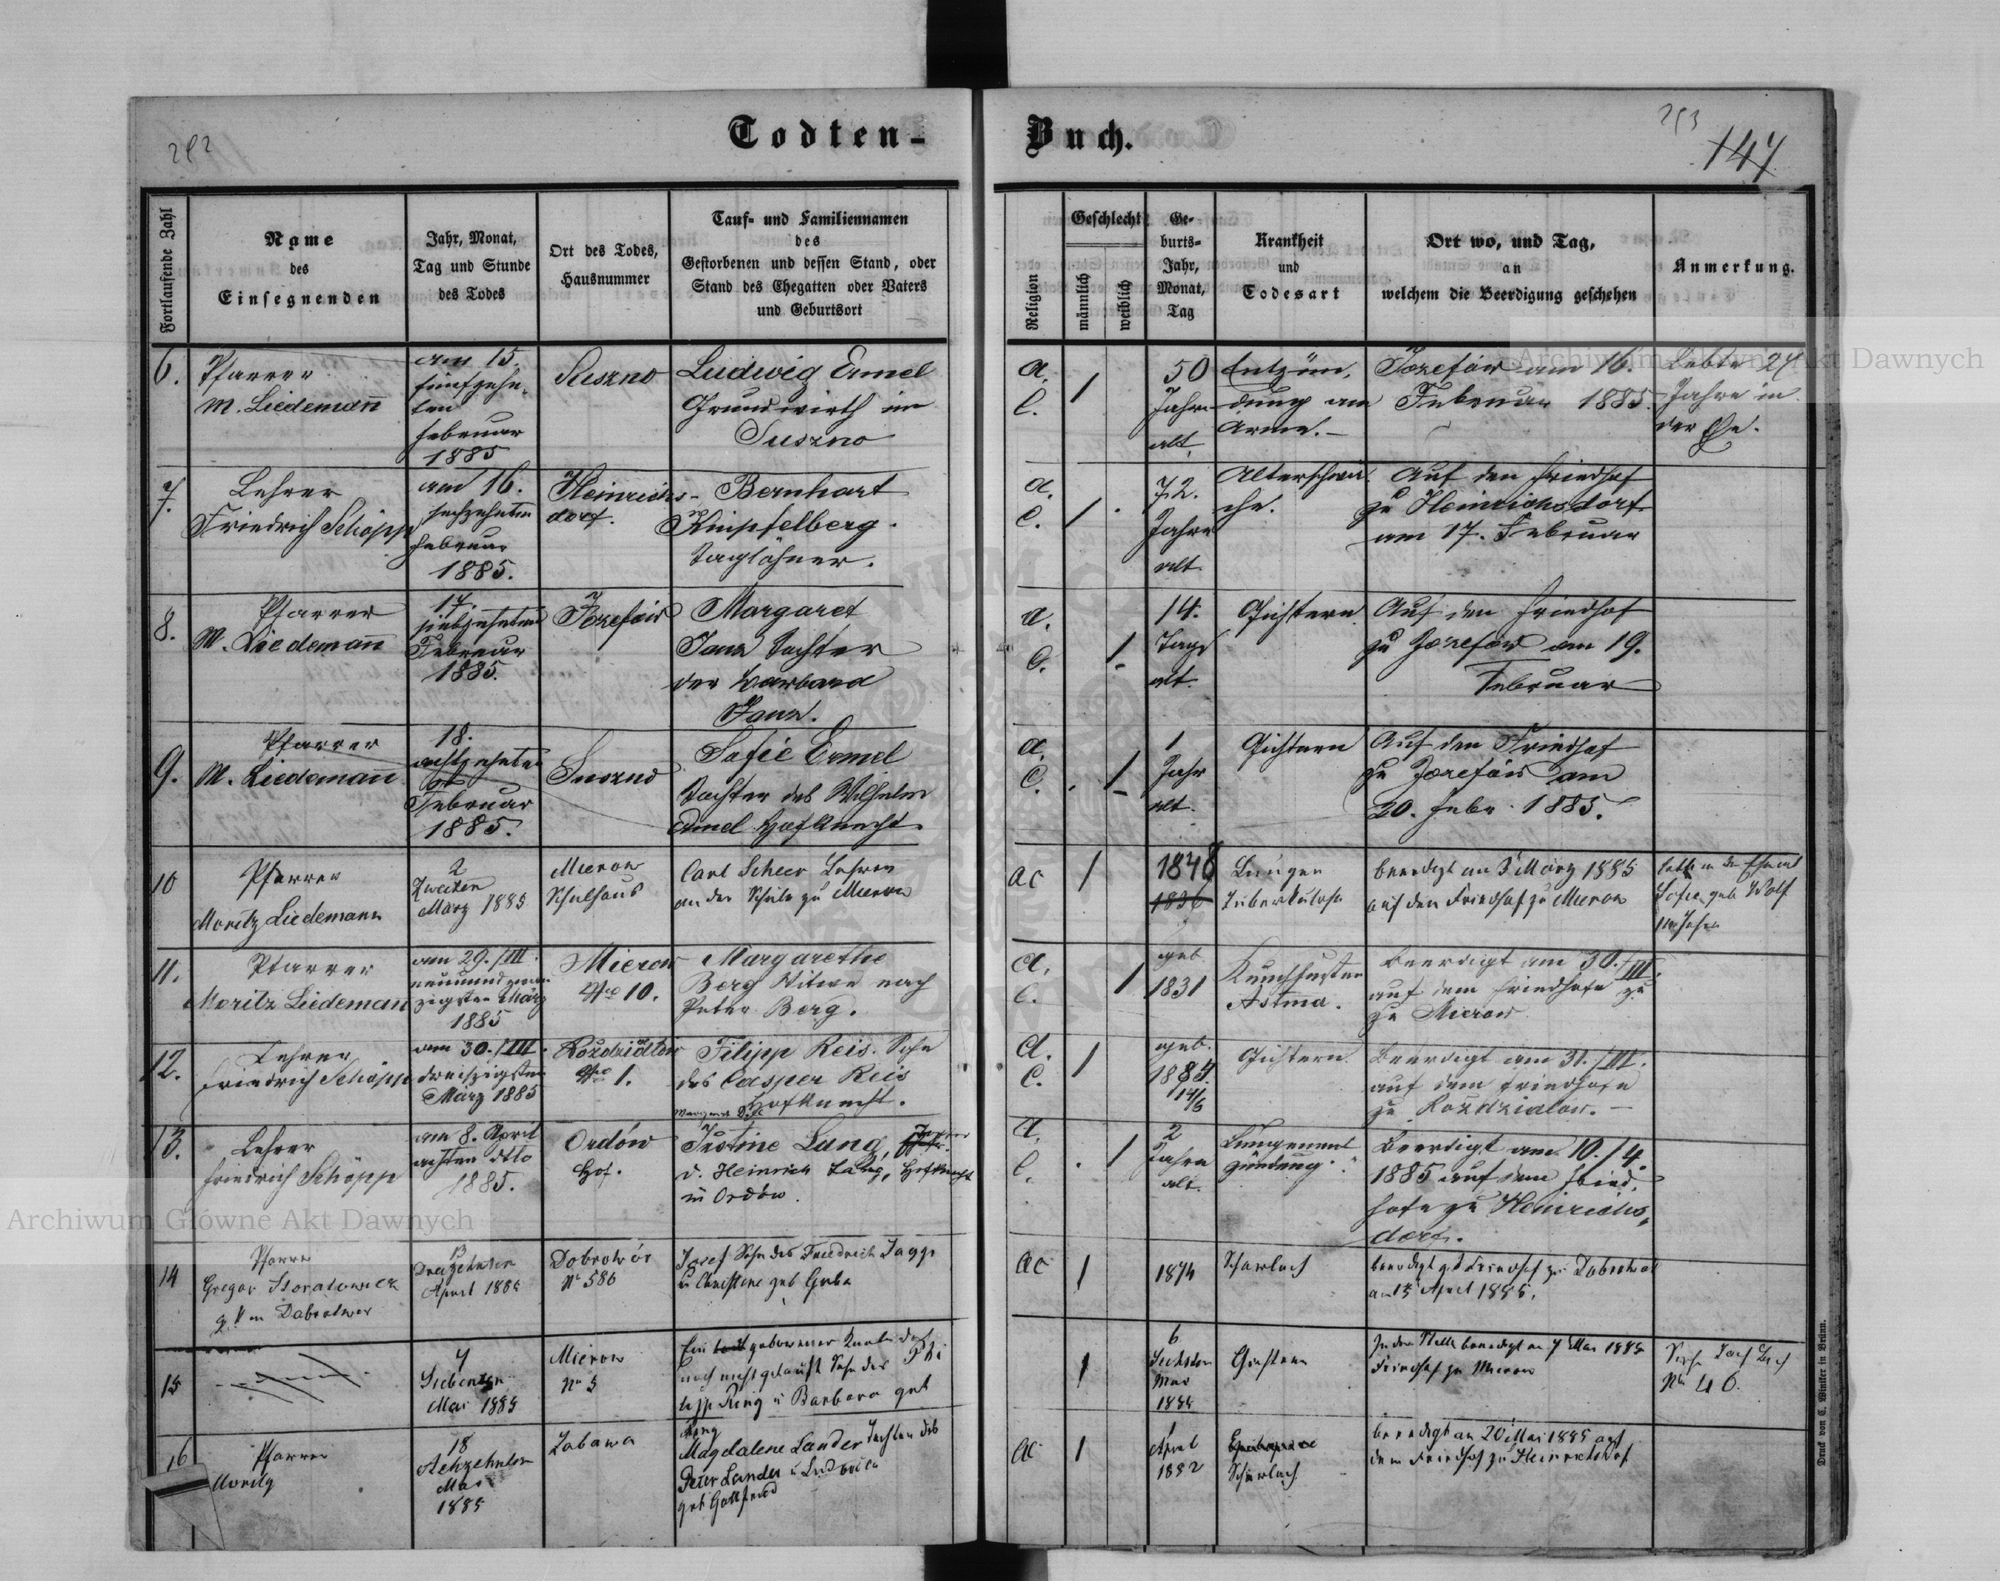 292
Todten-
Buch.
293
147
Fortlaufende Zahl
Name
des
Einsegnenden
Jahr, Monat,
Tag und Stunde
des Todes
Ort des Todes,
Hausnummer
Tauf- und Familiennamen
des
Gestorbenen und dessen Stand, oder
Stand des Ehegatten oder Vaters
und Geburtsort
Religion
Geschlecht
männlich
weiblich
Ge-
burts-
Jahr,
Monat,
Tag
Krankheit
und
Todesart
Ort wo, und Tag,
an
welchem die Beerdigung geschehen
Anmerkung.
6.
Pfarrer
M. Liedemann
am 15.
fünfzehn-
ten
Februar
1885
Suszno
Ludwig Ermel
Grundwirth in
Suszno
a.
C.
50
Jahre
alt
Entzün-
dung am
Arme.
Józefów am 16.
Februar 1885.
Lebte 24
Jahre in
der Ehe.
7.
Lehrer
Friedrich Schöpp
am 16.
sechzehnten
Februar
1885.
Heinrichs-
dorf.
Bernhart
Kimpfelberg.
Taglöhner.
a.
C.
72.
Jahre
alt
Alterschwä-
che.
Auf den Friedhof
zu Heinrichsdorf
am 17. Februar
8.
Pfarrer
M. Liedemann
17
siebzehnten
Februar
1885.
Józefów
Margaret
Janz Tochter
der Barbara
Janz.
a.
C.
14.
Tage
alt.
Gichtern.
Auf den Friedhof
zu Józefów am 19.
Februar
9.
Pfarrer
M. Liedemann
18.
achtzehnten
Februar
1885.
Suszno
Sofie Ermel
Tochter des Wilhelm
Ermel Hofknecht.
a.
C.
1
Jahr
alt.
Gichtern
Auf den Friedhof
zu Józefów am
20. Febr. 1885.
10
Pfarrer
Moritz Liedemann
2
Zweiten
März 1885
Mierow
Schulhaus
Carl Scheer Lehrer
an der Schule zu Mierow
AC
1848
1836
Lungen
Tuberkulose
beerdigt am 3 März 1885
auf den Friedhof zu Mierow
Sofie geb Wolf
11.
Pfarrer
Moritz Liedemann
am 29./III.
neunundzwan
zigsten März
1885
Mierow
No 10.
Margarethe
Berg Witwe nach
Peter Berg.
A.
C.
geb
1831
Keuchhusten
Astma.
Beerdigt am 30./III.
auf dem Friedhofe zu
zu Mierow
12.
Lehrer
Friedrich Schöpp
am 30./III.
dreißigsten
März 1885
No 1.
Filipp Reis. Sohn
des Casper Reis
Hofknecht.
A.
C.
geb.
1884.
14/6
Gichtern.
Beerdigt am 31./III.
auf dem Friedhofe
zu Rożdzialow.
13.
Lehrer
Friedrich Schöpp
am 8. April
achten dtto
1885.
Ordów
Hof.
Justine Lang,
d. Heinrich Lang, Hofknecht
in Ordów.
A.
C.
2
Jahre
alt.
Lungenent
zündung.
Beerdigt am 10./4.
1885 auf dem Fried-
hofe zu Heinrichs-
dorf.
14
Pfarrer
13
Dreizehnten
April 1885
Dobrotwór
No 586
Josef Sohn des Friedrich
AC
1874
Scharlach
15
7
Siebenten
Mai 1885
Mierow
No 3
Ein todt geborener Knabe
noch nicht getauft Sohn des Phi
lipp Ring u Barbara geb
Ring
6
Sechsten
Mai
Gichtern
Friedhof zu Mierow
16
Pfarrer
Moritz
18
Achzehnten
Mai
1885
Zabawa
Magdalene Lander Tochter des
Peter Lander u Ludwika
geb Gottfried
AC
April
1882
Scharlach
beerdigt am 20 Mai 1885 auf
dem Friedhof zu Heinrichsdorf
Druck von C. Winiker in Brünn.
Archiwum Główne Akt Dawnych
Archiwum Główne Akt Dawnych